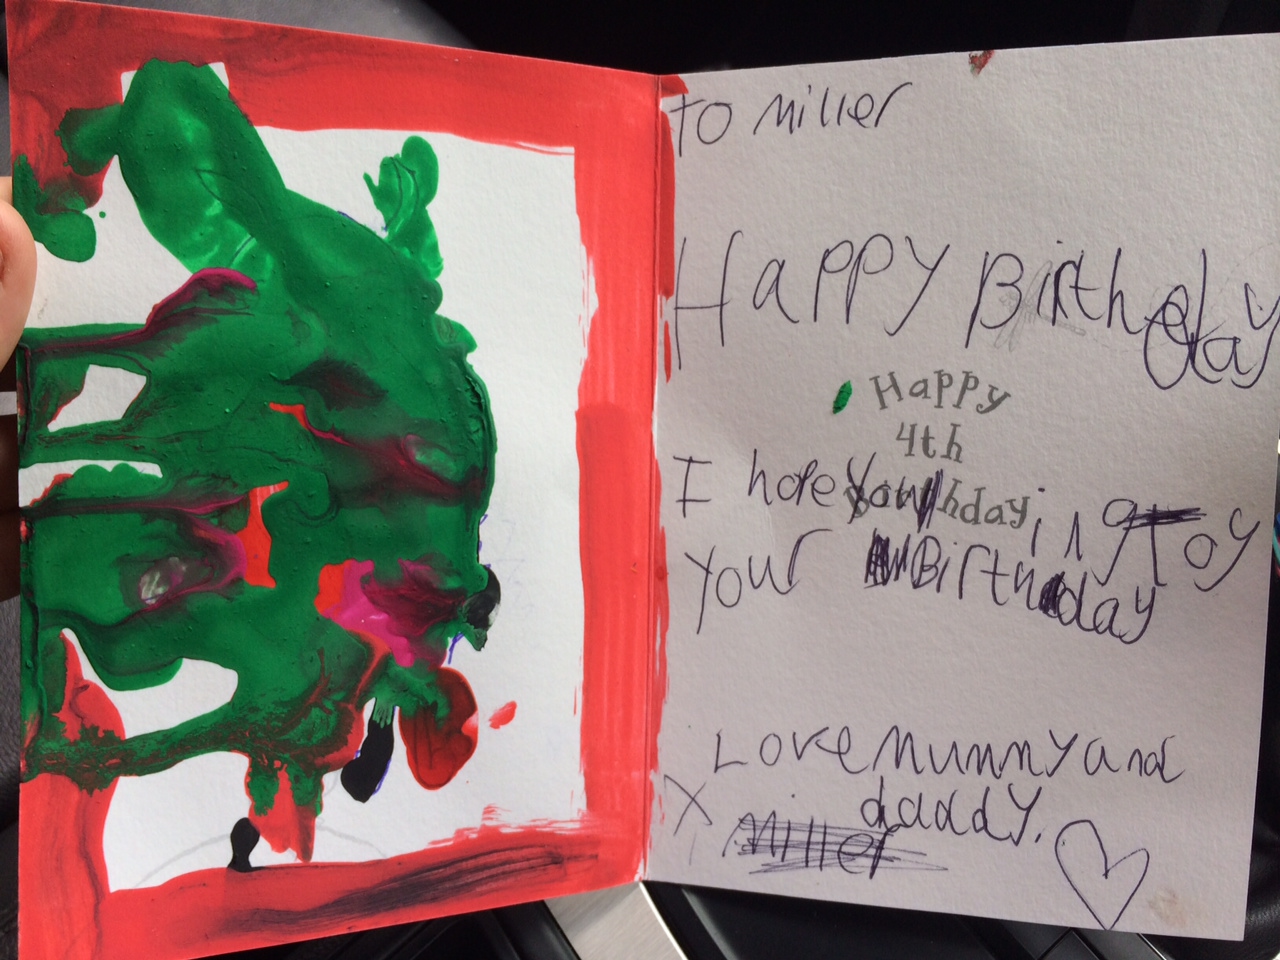 To Miller
Happy Birthday
Happy
4th
I hope you in gjoy
your Birthday
Love Mummy and
daddy.
X Miller